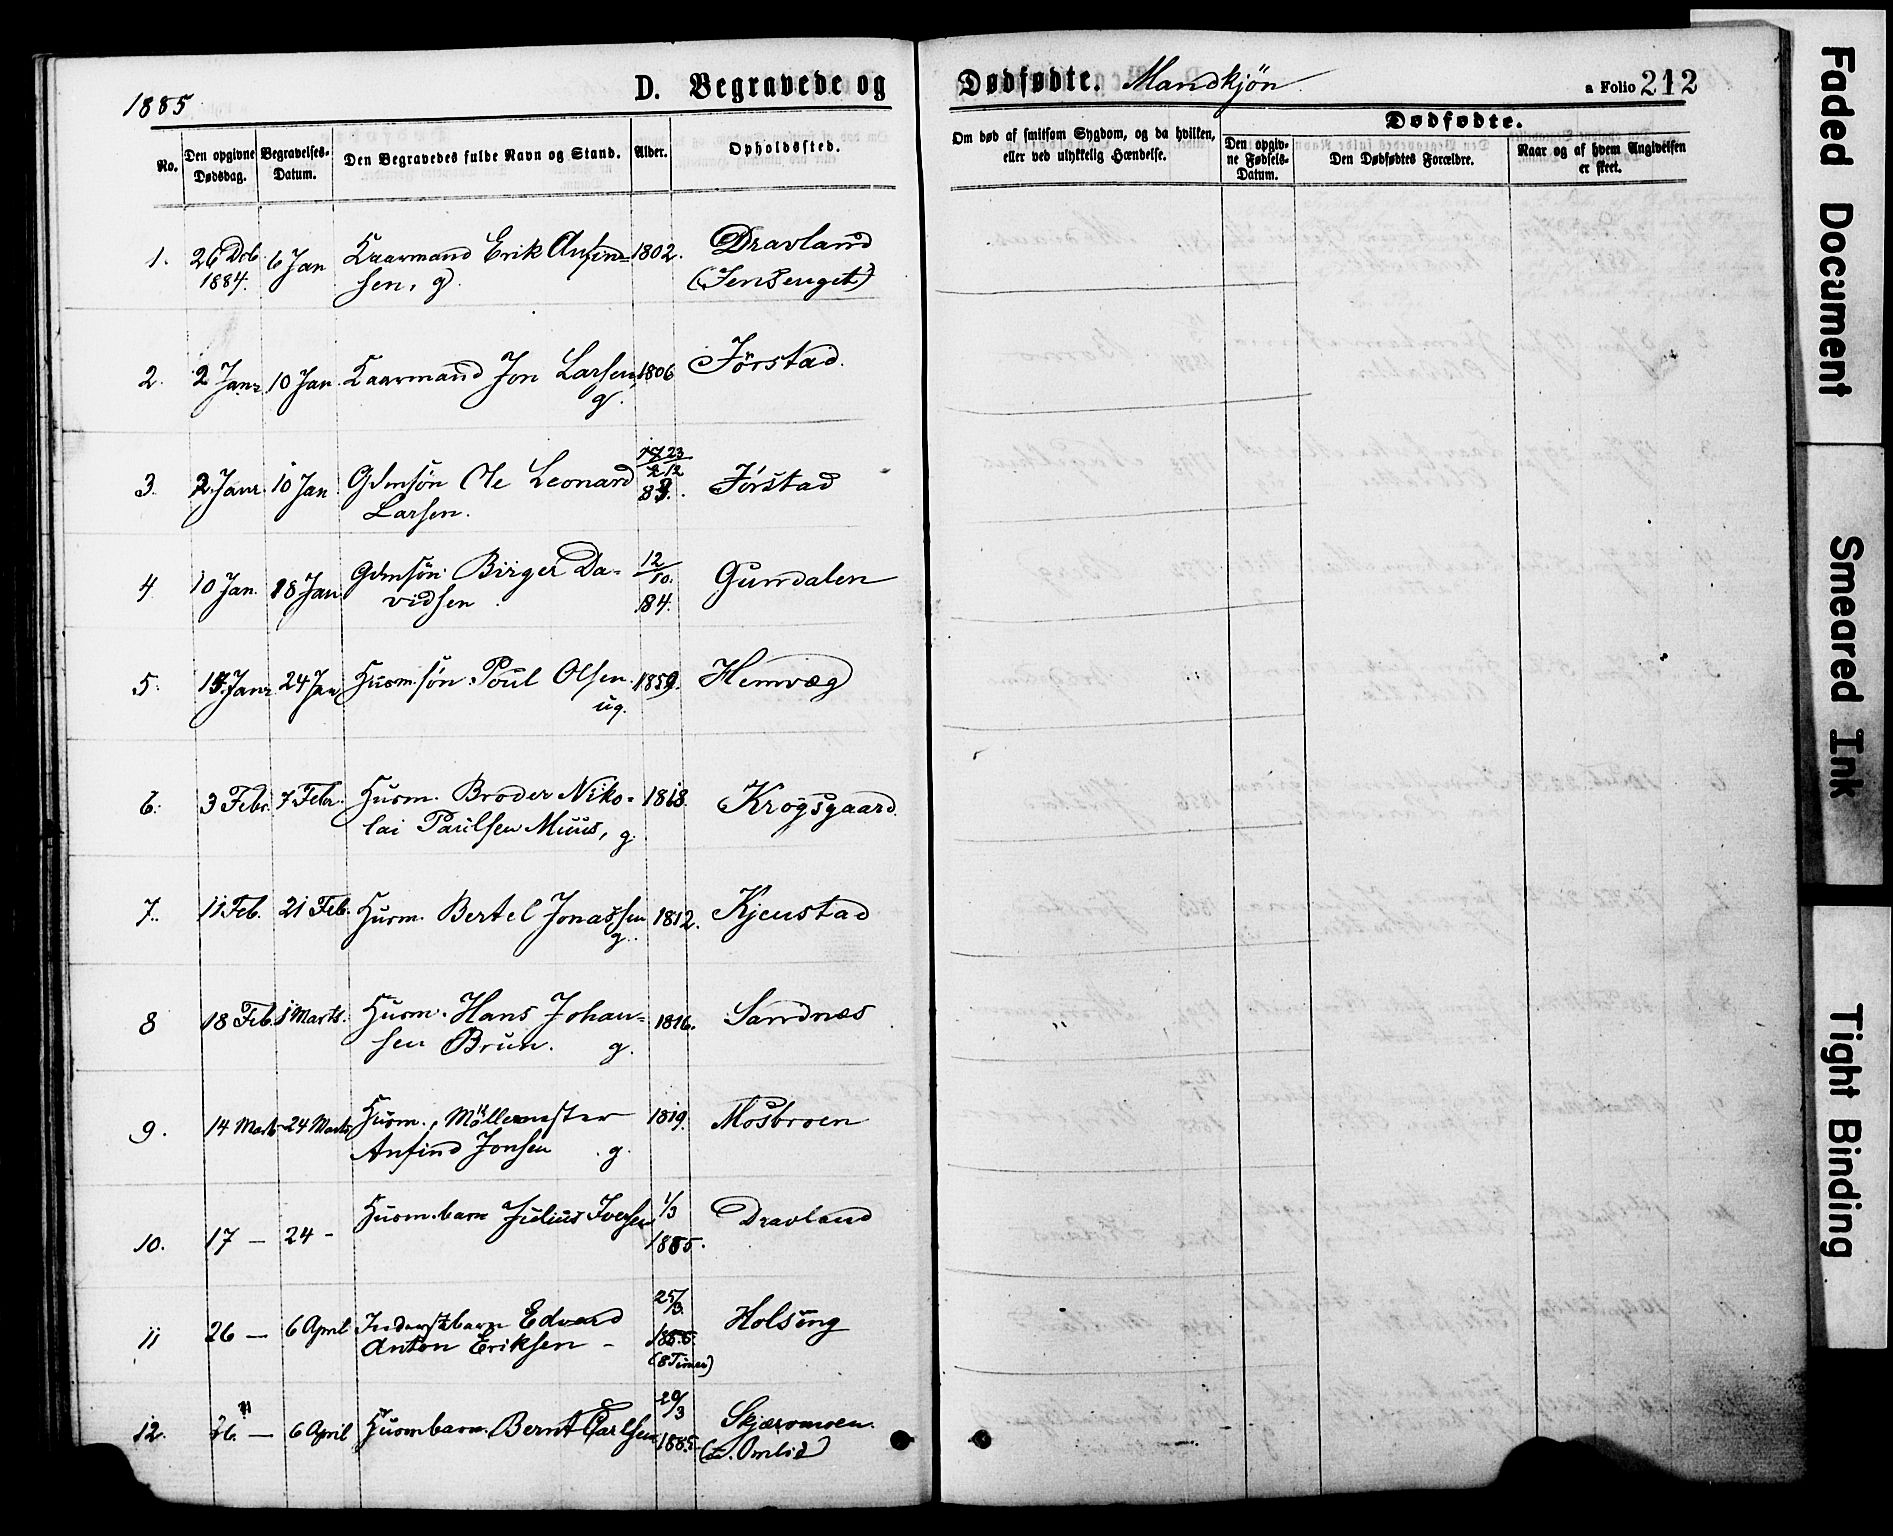 1885
D. Begravede og
Dødfødte. Mandkjön
a Folio 212
No.
Den opgivne Dødsdag.
Begravelses-Datum.
Den Begravedes fulde Navn og Stand.
Alder.
Opholdssted.
Om død af smitsom Sygdom, og da hvilken,
eller ved ulykkelig Hændelse.
Dødfødte.
Den opgiv-
ne Fødsels-
Datum.
Den Dødfødtes Forældre.
Naar og af hvem Angivelsen
er skeet.
1. 26 Deb 6 Jan Kaarmand Erik Anfind= 1802. Dravland
1884. sen, g. (Jensenget)
2. 2 Janr 10 Jan Kaarmand Jon Larsen 1806 Förstad.
g.
3. 2 Janr. 10 Jan Gdmsön Ole Leonard Förstad
Larsen.
4 10 Jan. 18 Jan Gdmsön Birger Da- 12/10. Gundalen
vidsen 84.
5. Janr 24 Jan Husm.søn Poul Olsen 1859. Hemvæg
ug.
6. 3 Febr. 7 Febr. Husm. Broder Niko- 1818. Krogsgaard
lai Paulsen Muus, g.
7. 11 Feb. 21 Feb. Husm. Bertel Jonassen 1812. Kjeustad
g.
8 18 Feb. 1 Marts. Husm. Hans Johan= 1816. Sandnæs
sen Brun. g.
9. 14 Marts 24 Marts Husm., Möllemester 1819. Mosbroen
Anfind Jonsen g.
10. 17 — 24 - Husm.barn Julius Iversen 1/3 Dravland
1885.
11 26 — 6 April Inderstbarn Edvard 25/3 Holsing
Anton Eriksen - 1885.
(8 Timer)
12. 26. — 6 April Husmbarn. Bernt Carlsen 20/3 Skjæromoen.
1885 (u. Omlid)
Faded Document
Smeared Ink
Tight Binding